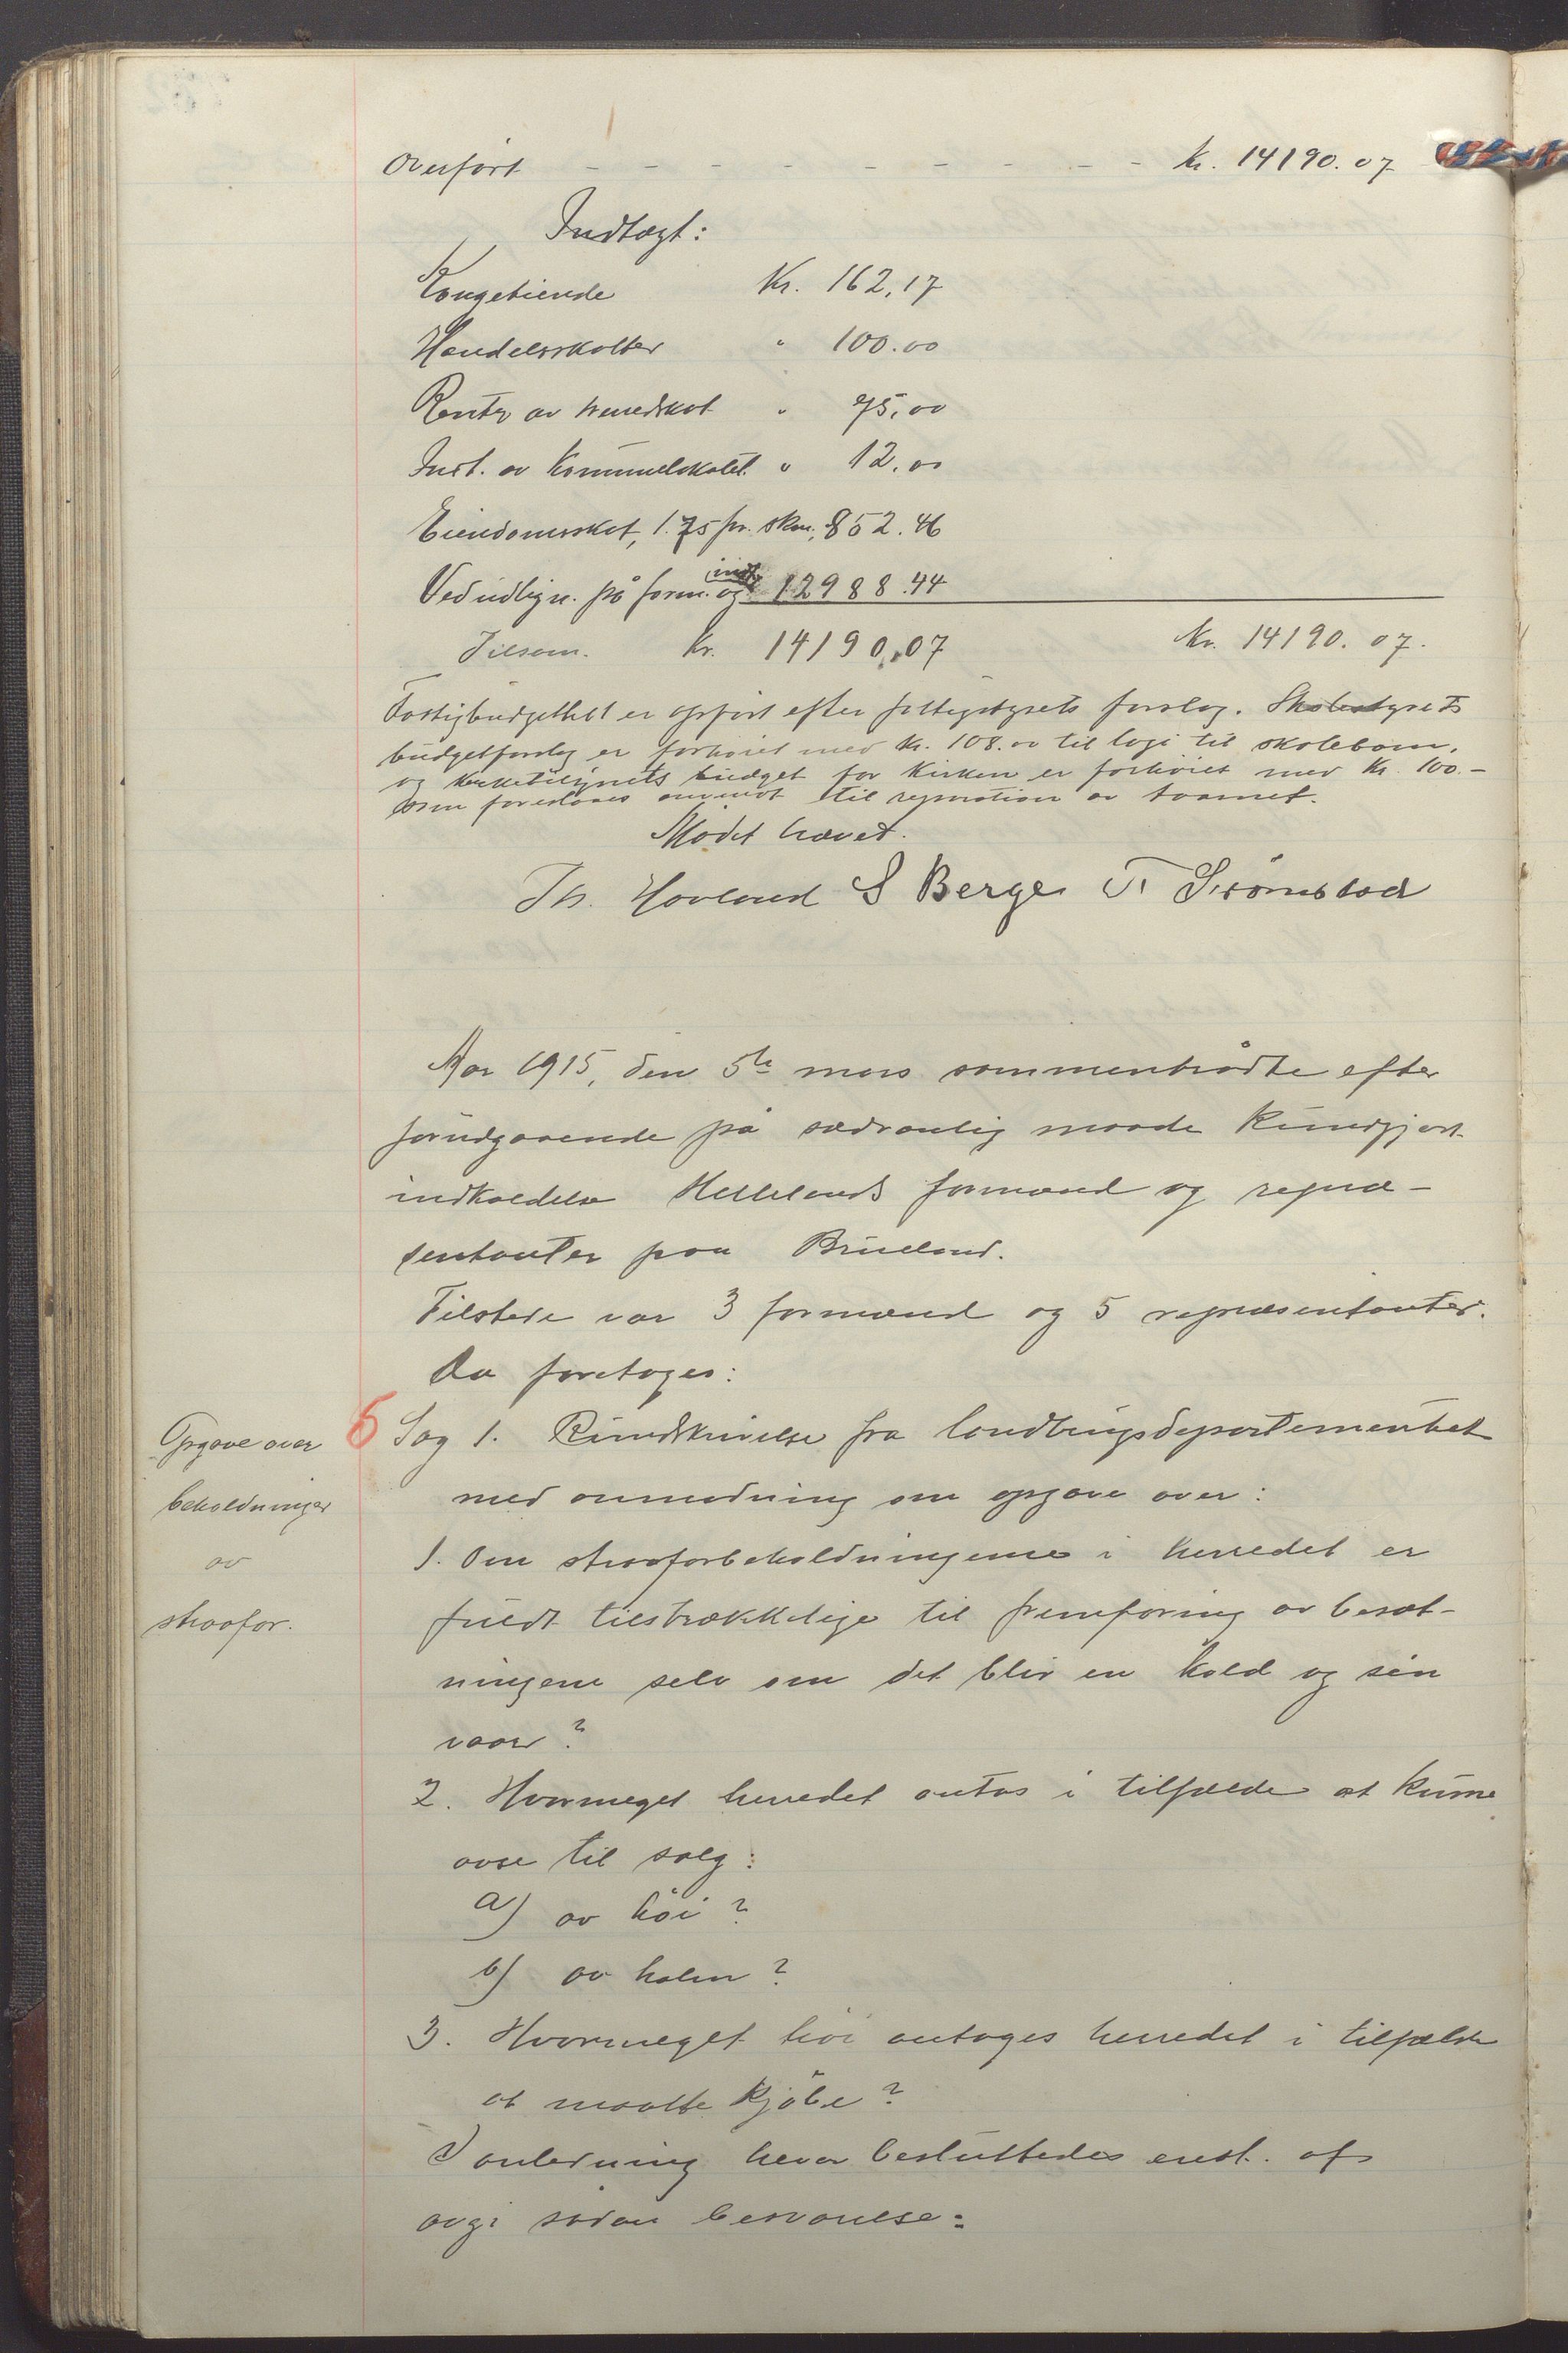 Overført - - - - - - - - - Kr. 14190.07
Indtægt:
Kongetiende Kr. 162,17
Handelsskatter " 100.00
Renter av herredskat " 75,00
Indt. av Kommunelokalet " 12.00
Eiendomsskat, 1.75 pr. skm., 852.46
Ved udlign. på form. og indt. 12988.44
Tilsam. Kr. 14190,07 Kr. 14190.07.
Fattigbudgettet er opført efter fattigstyrets forslag. Skolestyrets
budgetforslag er forhøiet med Kr. 108.00 til logi til skolebørn.
og kirketilsynets budget for Kirken er forhøiet med Kr. 100.-
som foreslaaes anvendt til reparation av taarnet.
Mødet hævet.
Th. Hovland S Berge T Strømstad
Aar 1915, den 5te mars sammentrådte efter
forudgaaende på sædvanlig maade kundgjort
indkaldelse Hellelands formænd og repræ-
sentanter paa Brueland.
Tilstede var 3 formænd og 5 repræsentanter.
Da foretoges:
Opgave over
beholdninger
av
straafor.
6 Sag 1. Rundskrivelse fra landbrugsdepartementet
med anmodning om opgave over:
1. Om straaforbeholdningerne i herredet er
fuldt tilstrækkelige til fremforing av besæt-
ningene selv om det blir en kold og sen
vaar?
2. Hvormeget herredet antas i tilfælde at kunne
avse til salg:
a) av høi?
b) av halm?
3. Hvormeget høi antages herredet i tilfælde
at maatte kjøbe?
I anledning herav besluttedes enst. at
avgi sådan besvarelse: